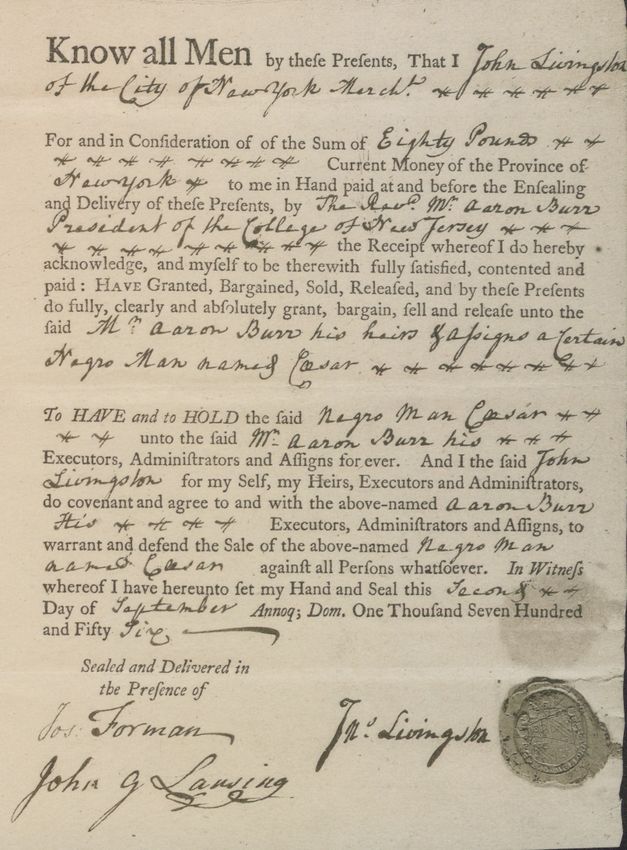 Know all Men by theſe Preſents, That I John Livingston
of the City of New York Mercht.
For and in Conſideration of of the Sum of Eighty Pounds
Current Money of the Province of
New York to me in Hand paid at and before the Enſealing
and Delivery of theſe Preſents, by The Revd. Mr. Aaron Burr
President of the College of New Jersey
the Receipt whereof I do hereby
acknowledge, and myſelf to be therewith fully ſatisfied, contented and
paid: HAVE Granted, Bargained, Sold, Releaſed, and by theſe Preſents
do fully, clearly and abſolutely grant, bargain, ſell and releaſe unto the
ſaid Mr. Aaron Burr his heirs & aſsigns a Certain
Negro Man named Cæsar
To HAVE and to HOLD the ſaid Negro Man Cæsar
unto the ſaid Mr. Aaron Burr his
Executors, Adminiſtrators and Aſſigns for ever. And I the ſaid John
Livingston for my Self, my Heirs, Executors and Adminiſtrators,
do covenant and agree to and with the above-named Aaron Burr
His Executors, Adminiſtrators and Aſſigns, to
warrant and defend the Sale of the above-named Negro Man
named Cæsar againſt all Perſons whatſoever. In Witneſs
whereof I have hereunto ſet my Hand and Seal this Second
Day of September Annoq; Dom. One Thouſand Seven Hundred
and Fifty Six
Sealed and Delivered in
the Preſence of
Jos: Forman
Jno. Livingston
John G Lansing